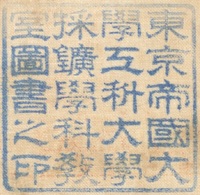 東京帝國大
學工科大學
採鑛學科教
室圖書之印